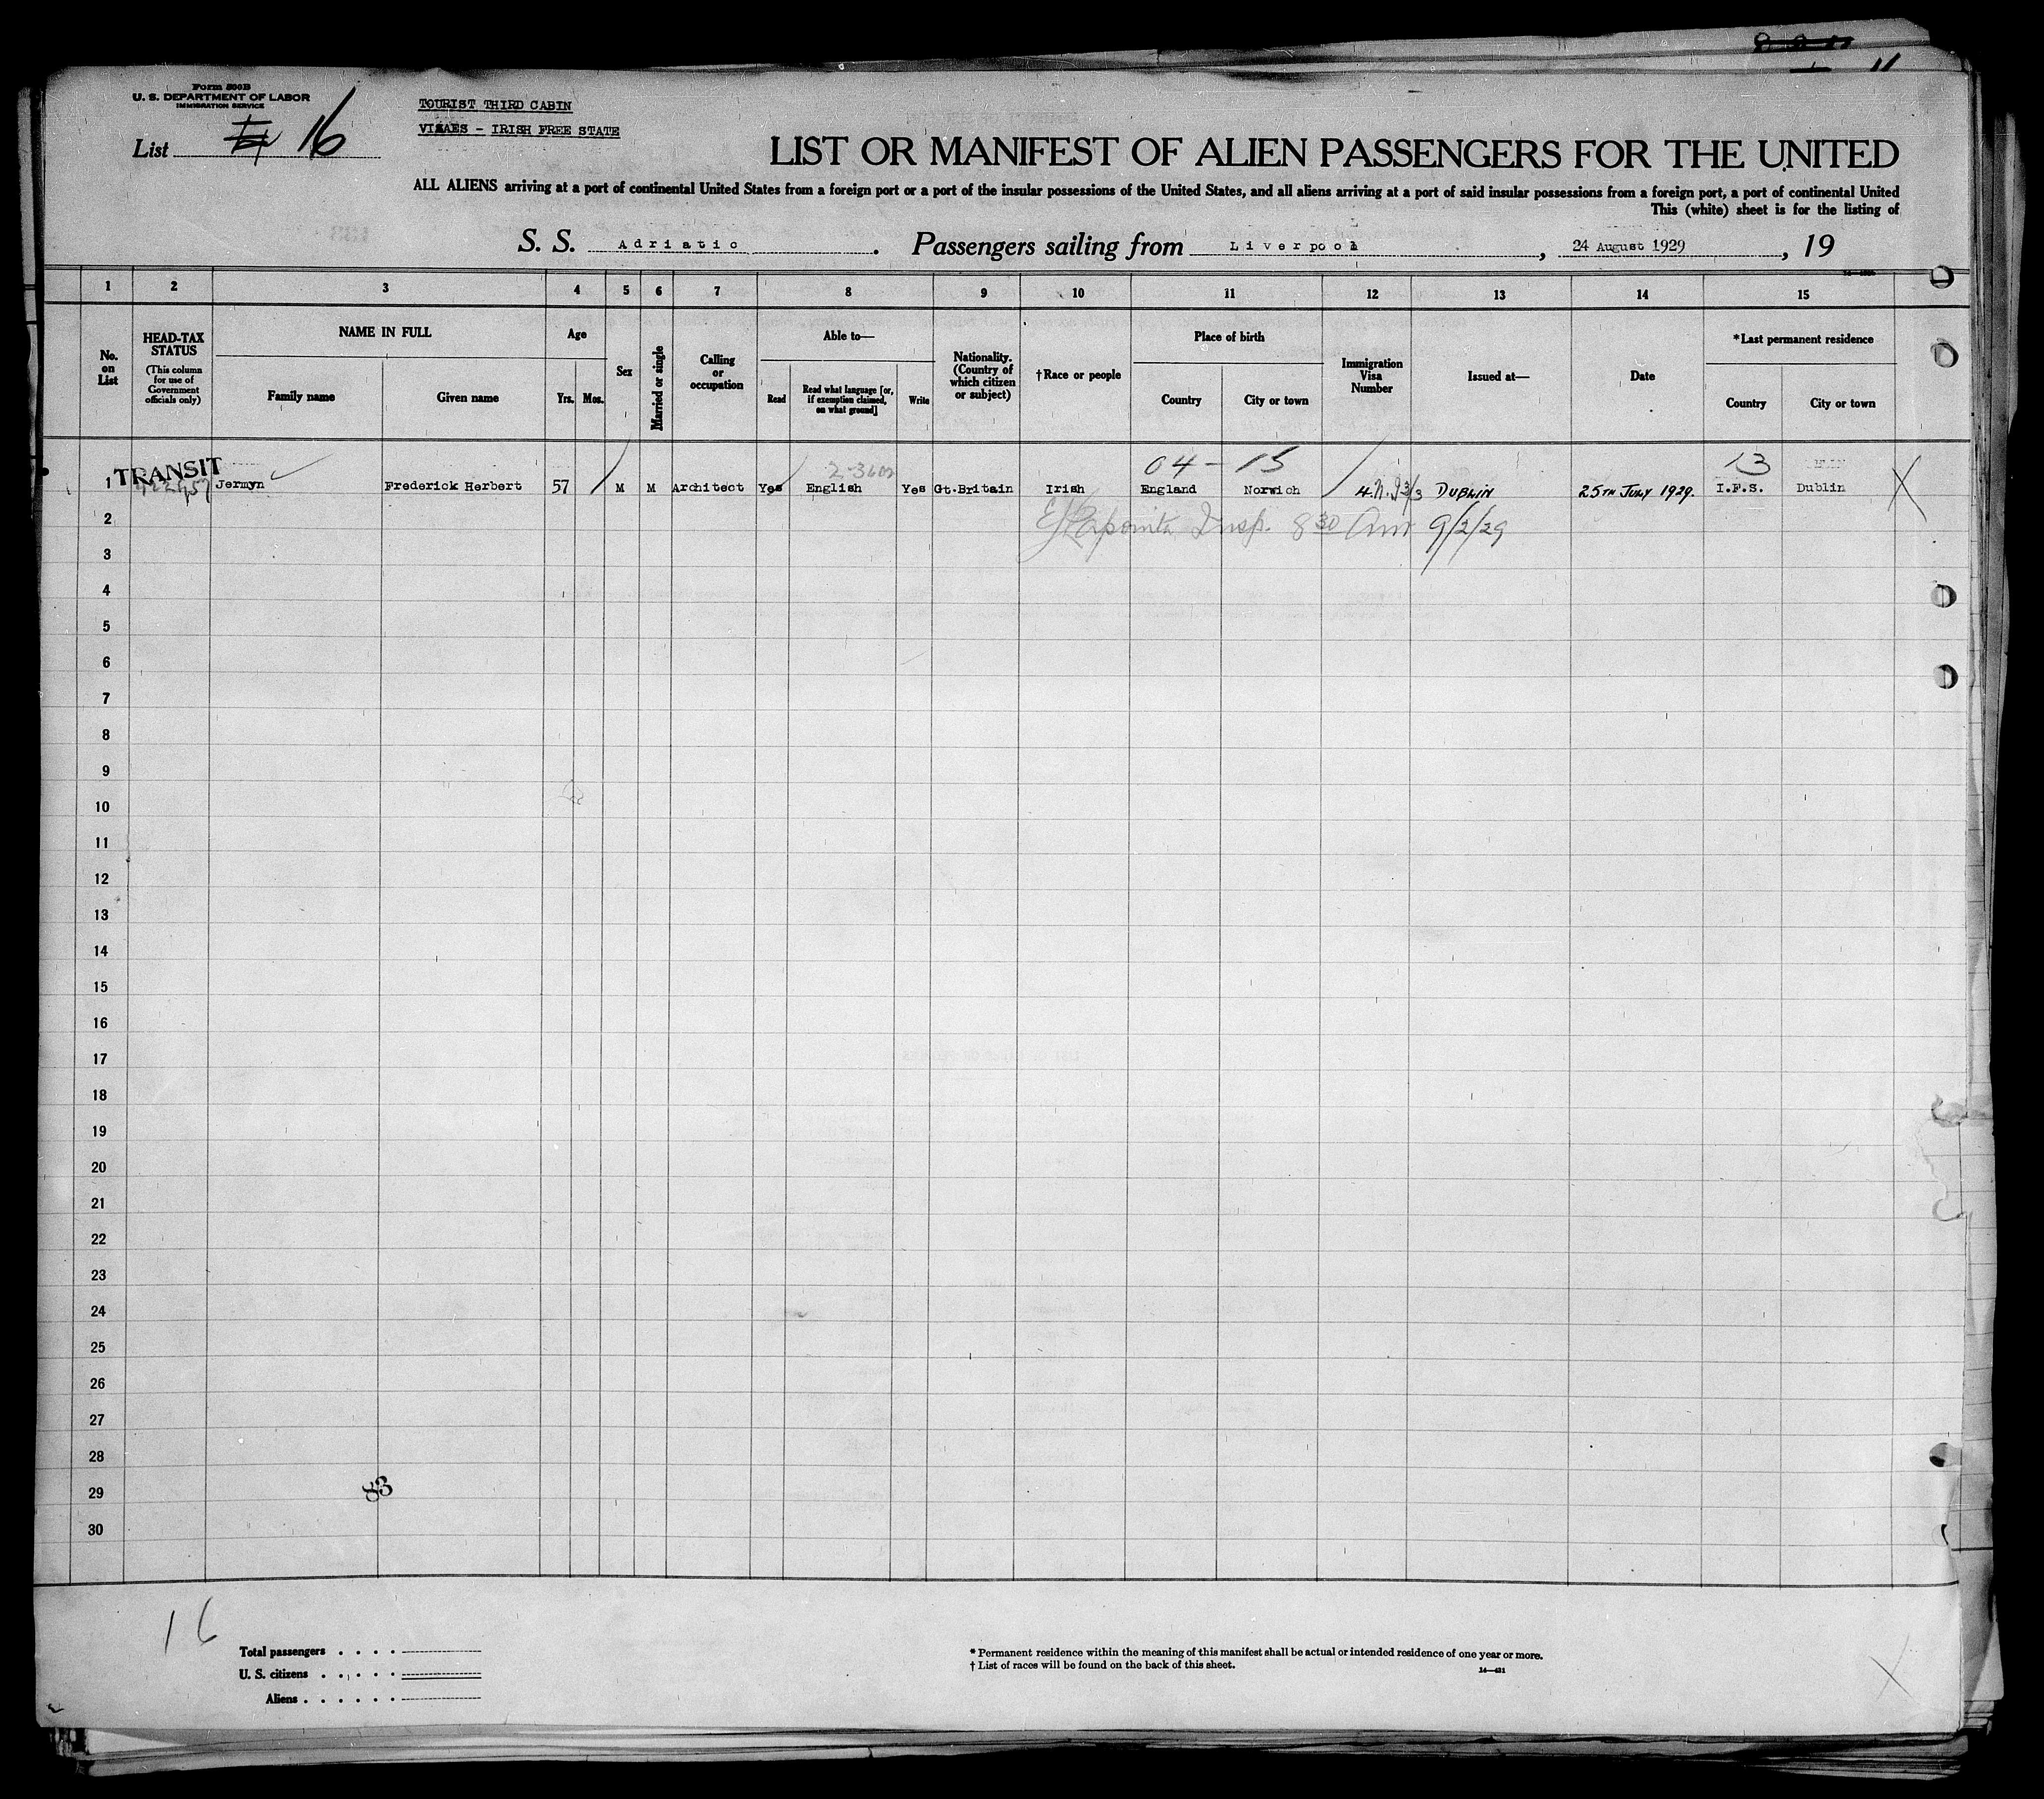 Form 500B
U. S. DEPARTMENT OF LABOR
IMMIGRATION SERVICE
List 16
TOURIST THIRD CABIN
VISAES - IRISH FREE STATE
11
LIST OR MANIFEST OF ALIEN PASSENGERS FOR THE UNITED
ALL ALIENS arriving at a port of continental United States from a foreign port or a port of the insular possessions of the United States, and all aliens arriving at a port of said insular possessions from a foreign port, a port of continental United
This (white) sheet is for the listing of
S. S. Adriatic. Passengers sailing from Liverpool, 24 August 1929, 19
1 2 3 4 5 6 7 8 9 10 11 12 13 14 15
No. on List
HEAD-TAX STATUS
(This column for use of Government officials only)
NAME IN FULL
Family name
Given name
Age
Yrs.
Mos.
Sex
Married or single
Calling or occupation
Able to—
Read
Read what language [or, if exemption claimed, on what ground]
Write
Nationality. (Country of which citizen or subject)
†Race or people
Place of birth
Country
City or town
Immigration Visa Number
Issued at—
Date
*Last permanent residence
Country
City or town
04 - 15
13
TRANSIT
1 Jermyn Frederick Herbert 57 M M Architect Yes English Yes Gt.Britain Irish England Norwich DUBLIN 25TH JULY 1929. I.F.S. Dublin X
2 Insp. 8 30 Am 9/2/29
3
4
5
6
7
8
9
10
11
12
13
14
15
16
17
18
19
20
21
22
23
24
25
26
27
28
29
30
83
16
Total passengers
U. S. citizens
Aliens
* Permanent residence within the meaning of this manifest shall be actual or intended residence of one year or more.
† List of races will be found on the back of this sheet.
14—421
X